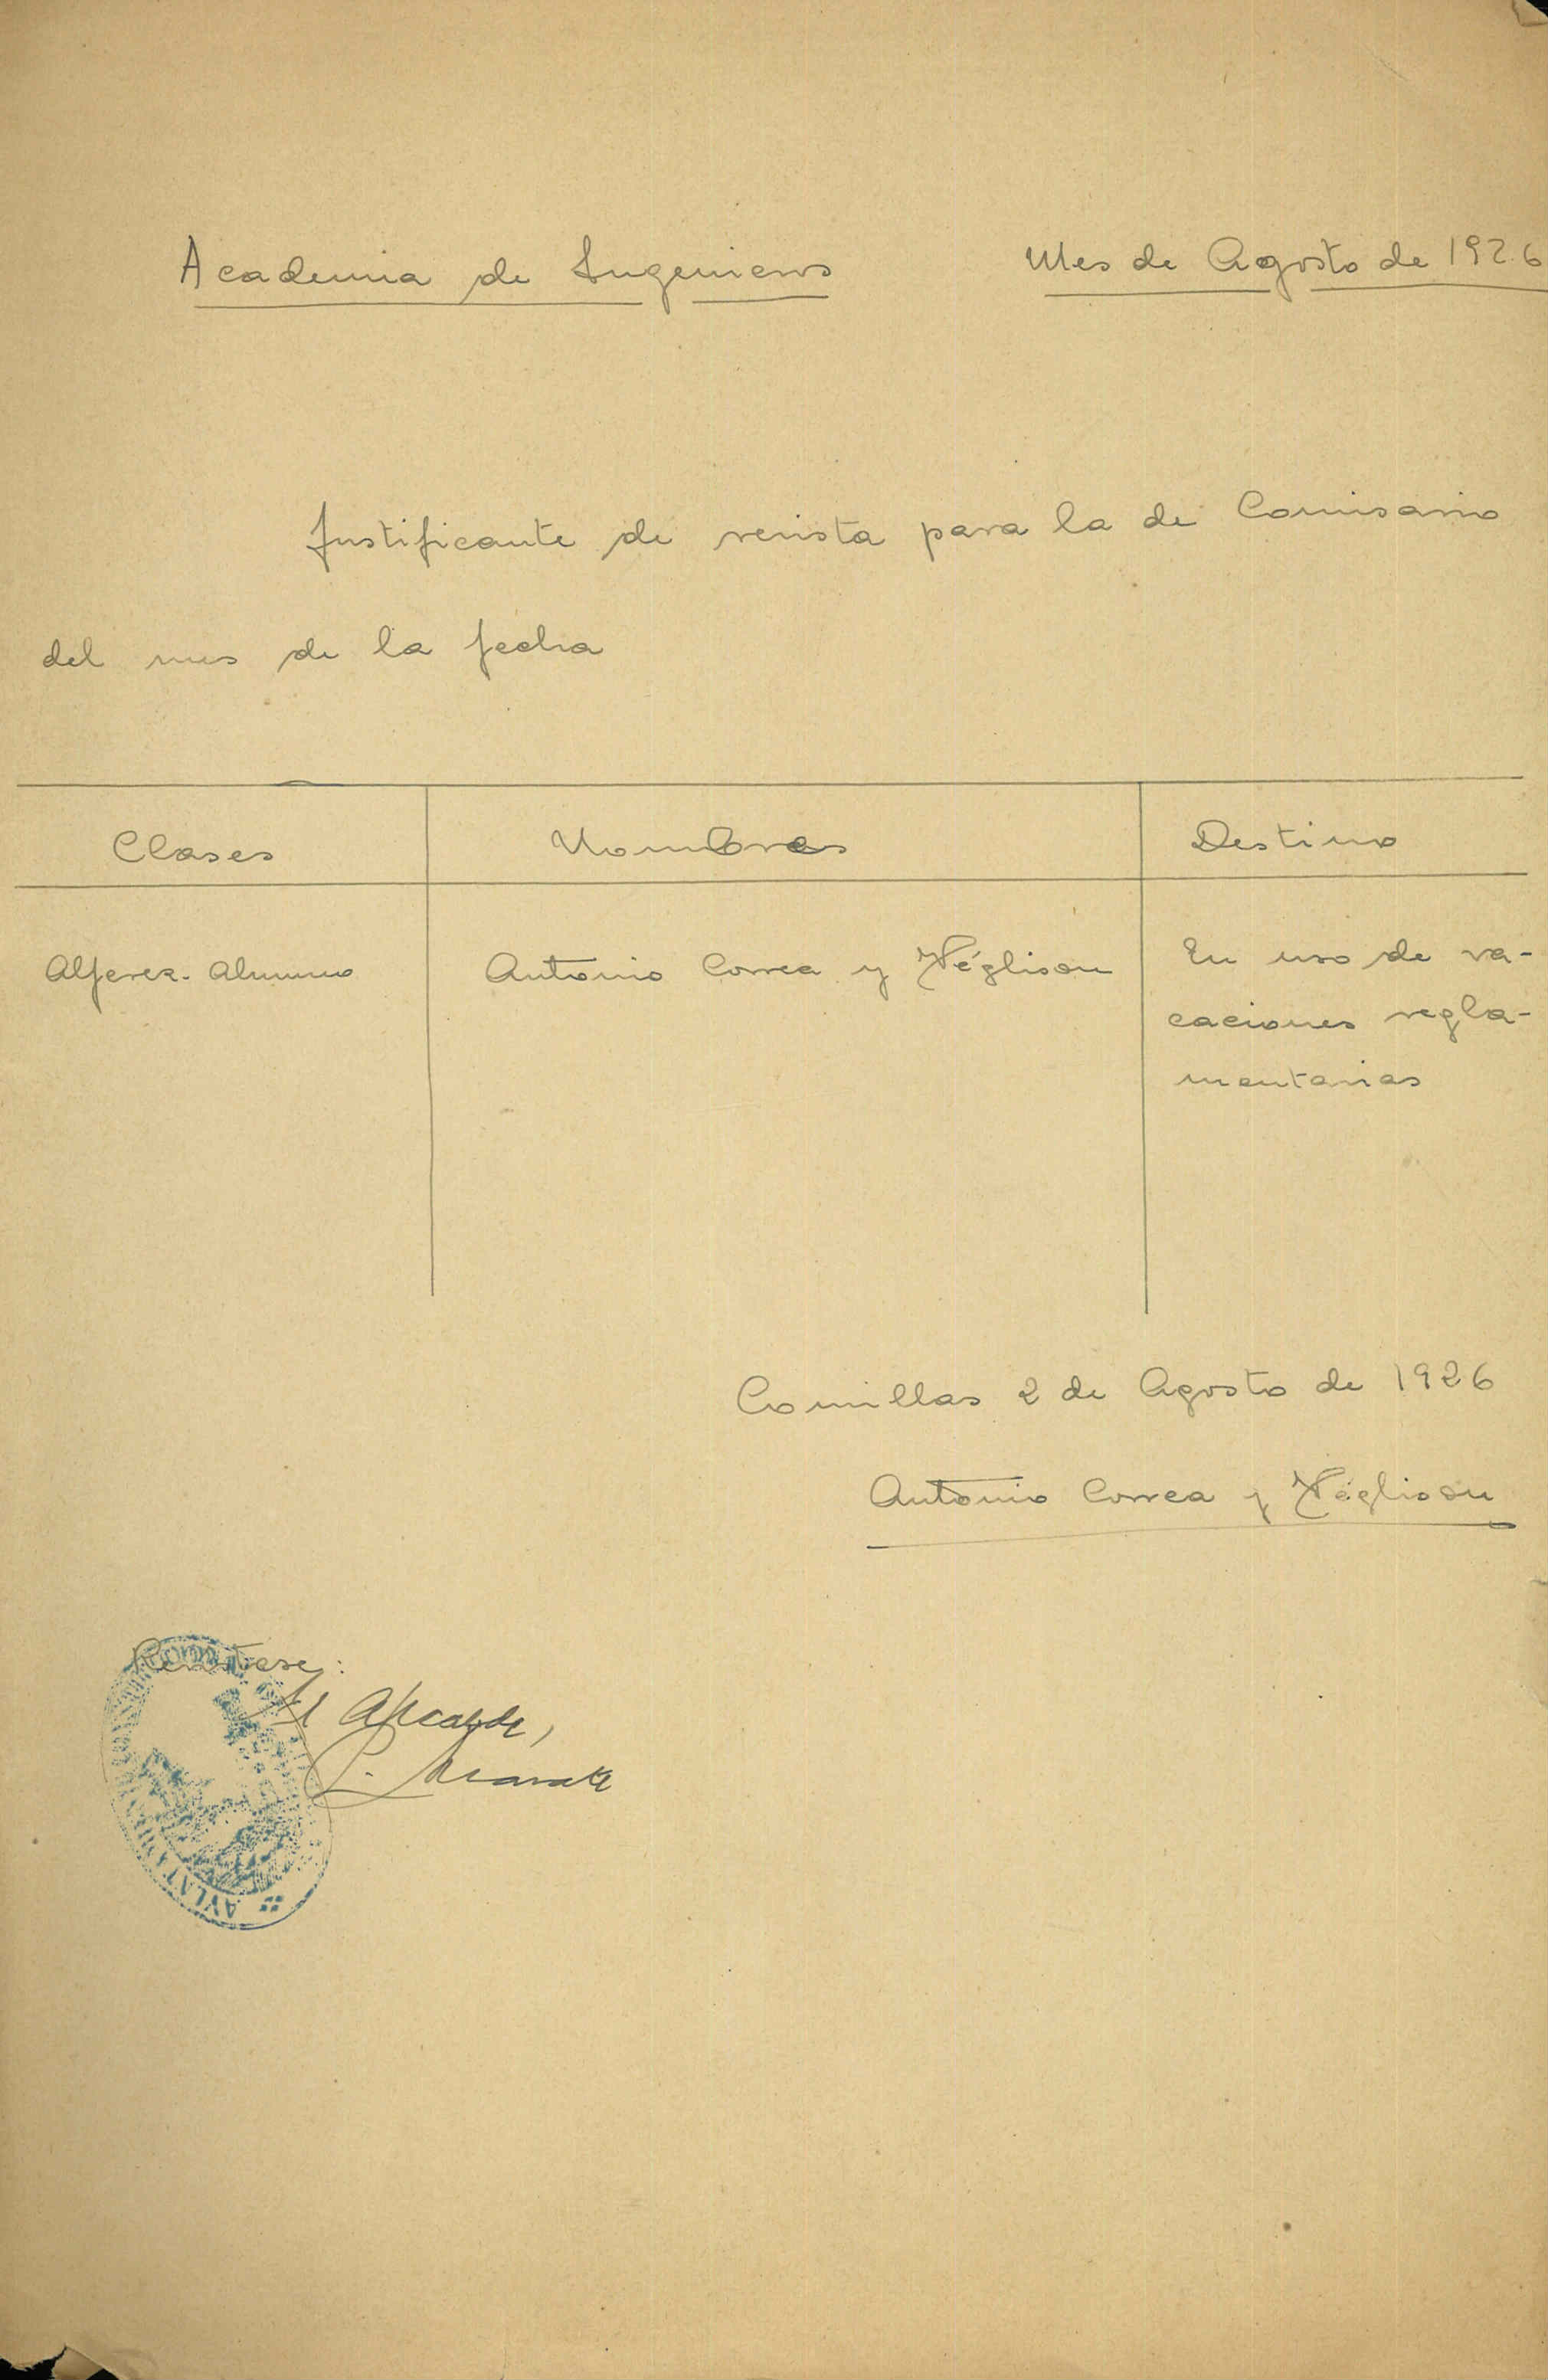 Academia de Ingenieros
Mes de Agosto de 1926
Justificante de revista para la de Comisario
del mes de la fecha
Clases Nombres Destino
Alferez-Alumno Antonio Correa y Véglison En uso de va-
caciones regla-
mentarias
Comillas 2 de Agosto de 1926
Antonio Correa y Véglison
Revistese:
El Alcalde,